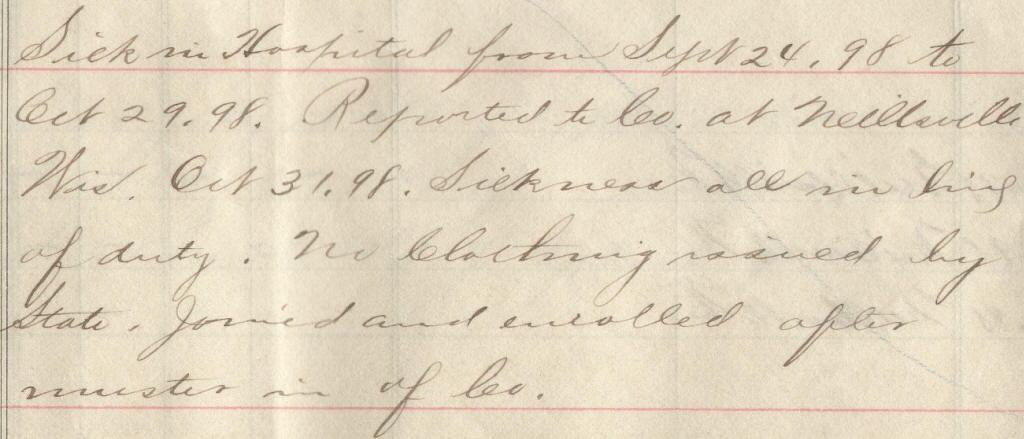 Sick in Hospital from Sept 24. 98 to
Oct 29. 98. Reported to Co. at Neillsville
Wis. Oct 31. 98. Sickness all in line
of duty. No Clothing issued by
State. Joined and enrolled after
muster in of Co.